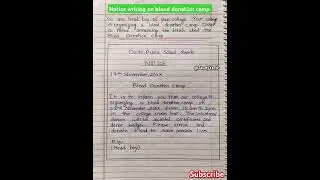 Notice writing on blood donation camp
You are head boy of your college. Your college
is organising a blood donation camp. Draft
a notice announcing the details about the
Blood Donation camp
Delhi Public School, Ranchi
NOTICE
17th November, 20XX
Blood Donation Camp
It is to inform you that our college is
organising a blood donation camp on
November, 20XX from 10 am to 5 pm
in the college
donors will be awarded certificates and
donor badges. Please arrive and
donate blood to save people's lives
Raju
(Head boy)
Subscribe